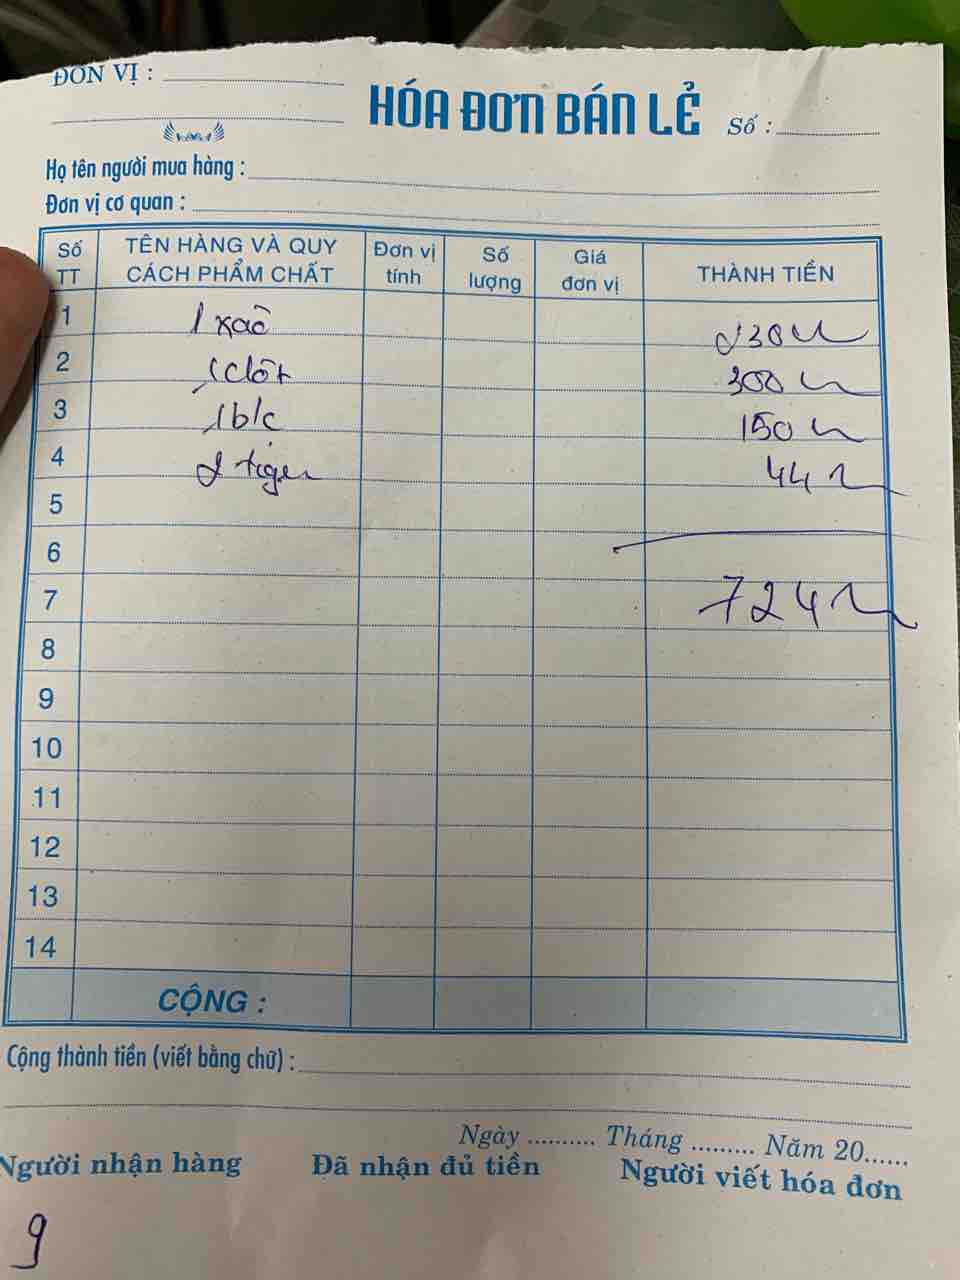 ĐƠN VỊ :
HÓA ĐƠN BÁN LẺ
Số :
Họ tên người mua hàng :
Đơn vị cơ quan :
Số TT TÊN HÀNG VÀ QUY CÁCH PHẨM CHẤT Đơn vị tính Số lượng Giá đơn vị THÀNH TIỀN
1 1 xào 230
2 1 300
3 1 b/c 150
4 2 tiger 44
5
6
7 724
8
9
10
11
12
13
14
CỘNG :
Cộng thành tiền (viết bằng chữ) :
Ngày .......... Tháng ......... Năm 20......
Người nhận hàng Đã nhận đủ tiền Người viết hóa đơn
9